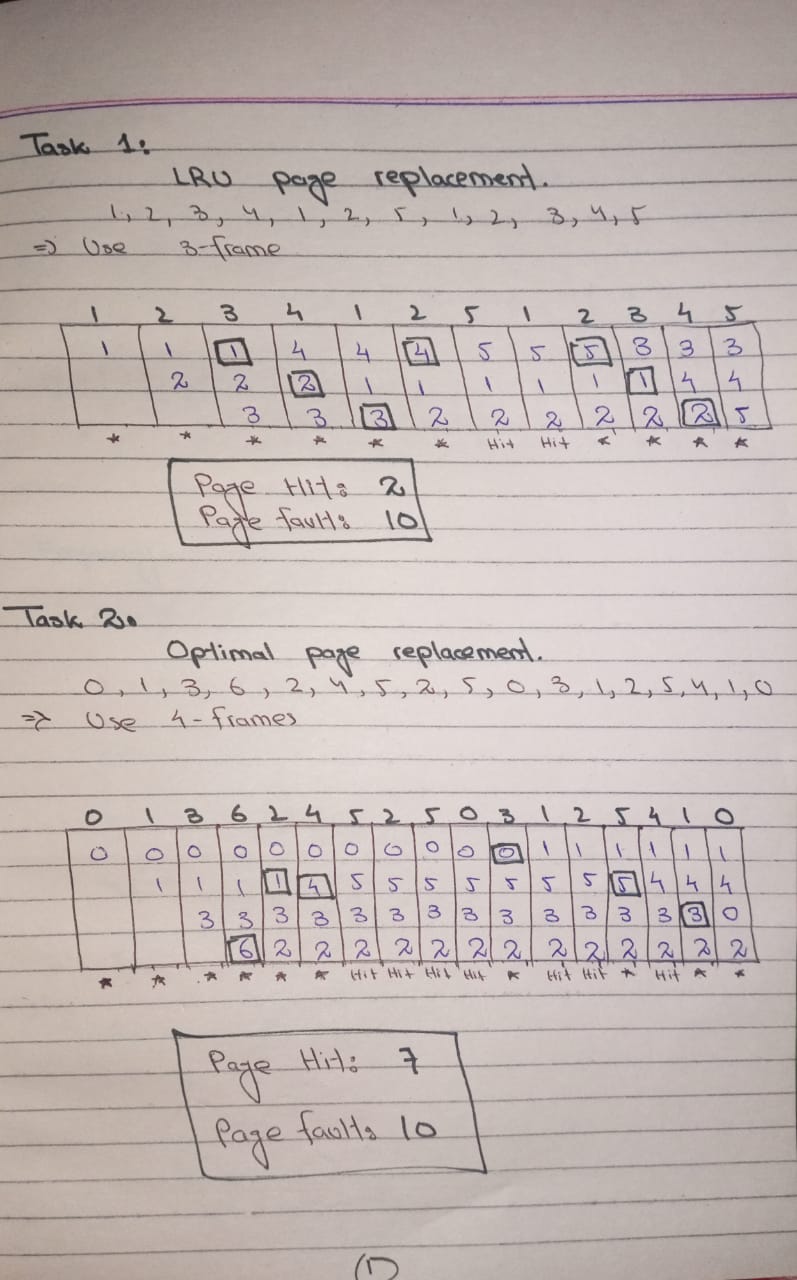 Task 1:
LRU page replacement.
1, 2, 3, 4, 1, 2, 5, 1, 2, 3, 4, 5
=> Use 3-frame
1 2 3 4 1 2 5 1 2 3 4 5
1 1 1 4 4 4 5 5 5 3 3 3
2 2 2 1 1 1 1 1 1 4 4
3 3 3 2 2 2 2 2 2 5
* * * * * * Hit Hit * * * *
Page Hit: 2
Page fault: 10
Task 2:
Optimal page replacement.
0, 1, 3, 6, 2, 4, 5, 2, 5, 0, 3, 1, 2, 5, 4, 1, 0
=> Use 4-frames
0 1 3 6 2 4 5 2 5 0 3 1 2 5 4 1 0
0 0 0 0 0 0 0 0 0 0 0 1 1 1 1 1 1
1 1 1 1 4 5 5 5 5 5 5 5 5 4 4 4
3 3 3 3 3 3 3 3 3 3 3 3 3 3 0
6 2 2 2 2 2 2 2 2 2 2 2 2 2
* * * * * * Hit Hit Hit Hit * Hit Hit * Hit * *
Page Hit: 7
Page fault: 10
(1)